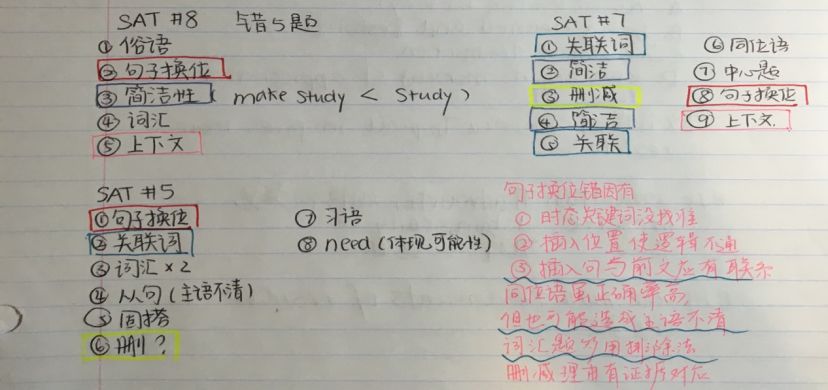 SAT #8 错5题
① 俗语
② 句子换位
③ 简洁性 ( make study < study )
④ 词汇
⑤ 上下文
SAT #7
① 关联词
② 简洁
③ 删减
④ 简洁
⑤ 关联
⑥ 同位语
⑦ 中心题
⑧ 句子换位
⑨ 上下文
SAT #5
① 句子换位
② 关联词
③ 词汇 × 2
④ 从句 (主语不清)
⑤ 固搭
⑥ 删?
⑦ 习语
⑧ need (体现可能性)
句子换位错因有
① 时态关键词没找准
② 插入位置使逻辑不通
③ 插入句与前文应有联系
同位语虽正确率高,
但也可能造成主语不清
词汇题多用排除法
删减理由有证据对应